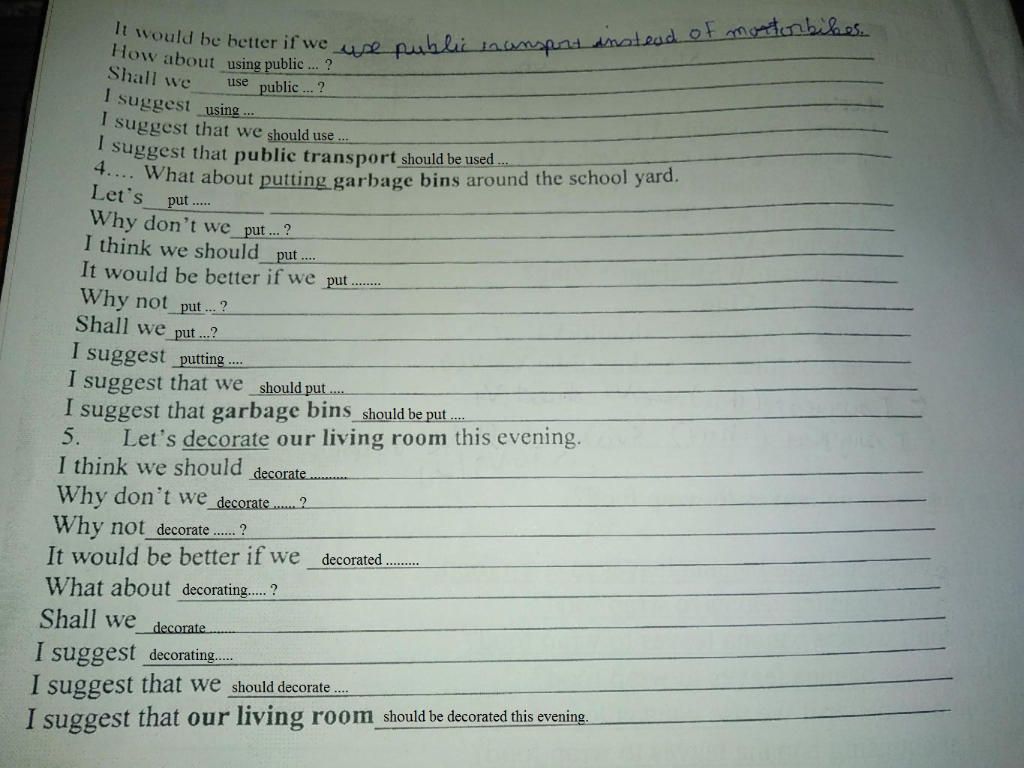 It would be better if we use public transport instead of mortorbikes.
How about using public ... ?
Shall we use public ... ?
I suggest using ...
I suggest that we should use ...
I suggest that public transport should be used ...
4.... What about putting garbage bins around the school yard.
Let's put .....
Why don't we put ... ?
I think we should put ....
It would be better if we put ........
Why not put ... ?
Shall we put ...?
I suggest putting ....
I suggest that we should put ....
I suggest that garbage bins should be put ....
5. Let's decorate our living room this evening.
I think we should decorate ..........
Why don't we decorate ...... ?
Why not decorate ...... ?
It would be better if we decorated .........
What about decorating..... ?
Shall we decorate .......
I suggest decorating.....
I suggest that we should decorate ....
I suggest that our living room should be decorated this evening.